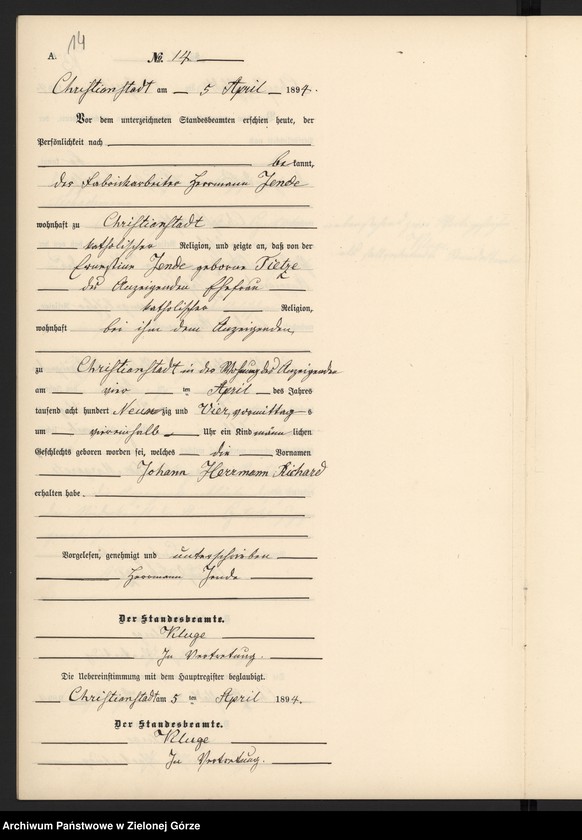 14
A.
No. 14
Christianstadt am 5 April 1894.
Vor dem unterzeichneten Standesbeamten erschien heute, der
Persönlichkeit nach
bekannt,
der Fabrikarbeiter Herrmann Jende
wohnhaft zu Christianstadt
katholischer Religion, und zeigte an, daß von der
Ernestine Jende geborne Tietze
des Anzeigenden Ehefrau
katholischer Religion,
wohnhaft bei ihm dem Anzeigenden,
zu Christianstadt in der Wohnung des Anzeigenden
am vier ten April des Jahres
tausend acht hundert Neunzig und Vier, vormittags
um viereinhalb Uhr ein Kind männlichen
Geschlechts geboren worden sei, welches die Vornamen
Johann Herrmann Richard
erhalten habe.
Vorgelesen, genehmigt und unterschrieben
Herrmann Jende
Der Standesbeamte.
Kluge
In Vertretung.
Die Uebereinstimmung mit dem Hauptregister beglaubigt.
Christianstadt am 5 ten April 1894.
Der Standesbeamte.
Kluge
In Vertretung.
Archiwum Państwowe w Zielonej Górze